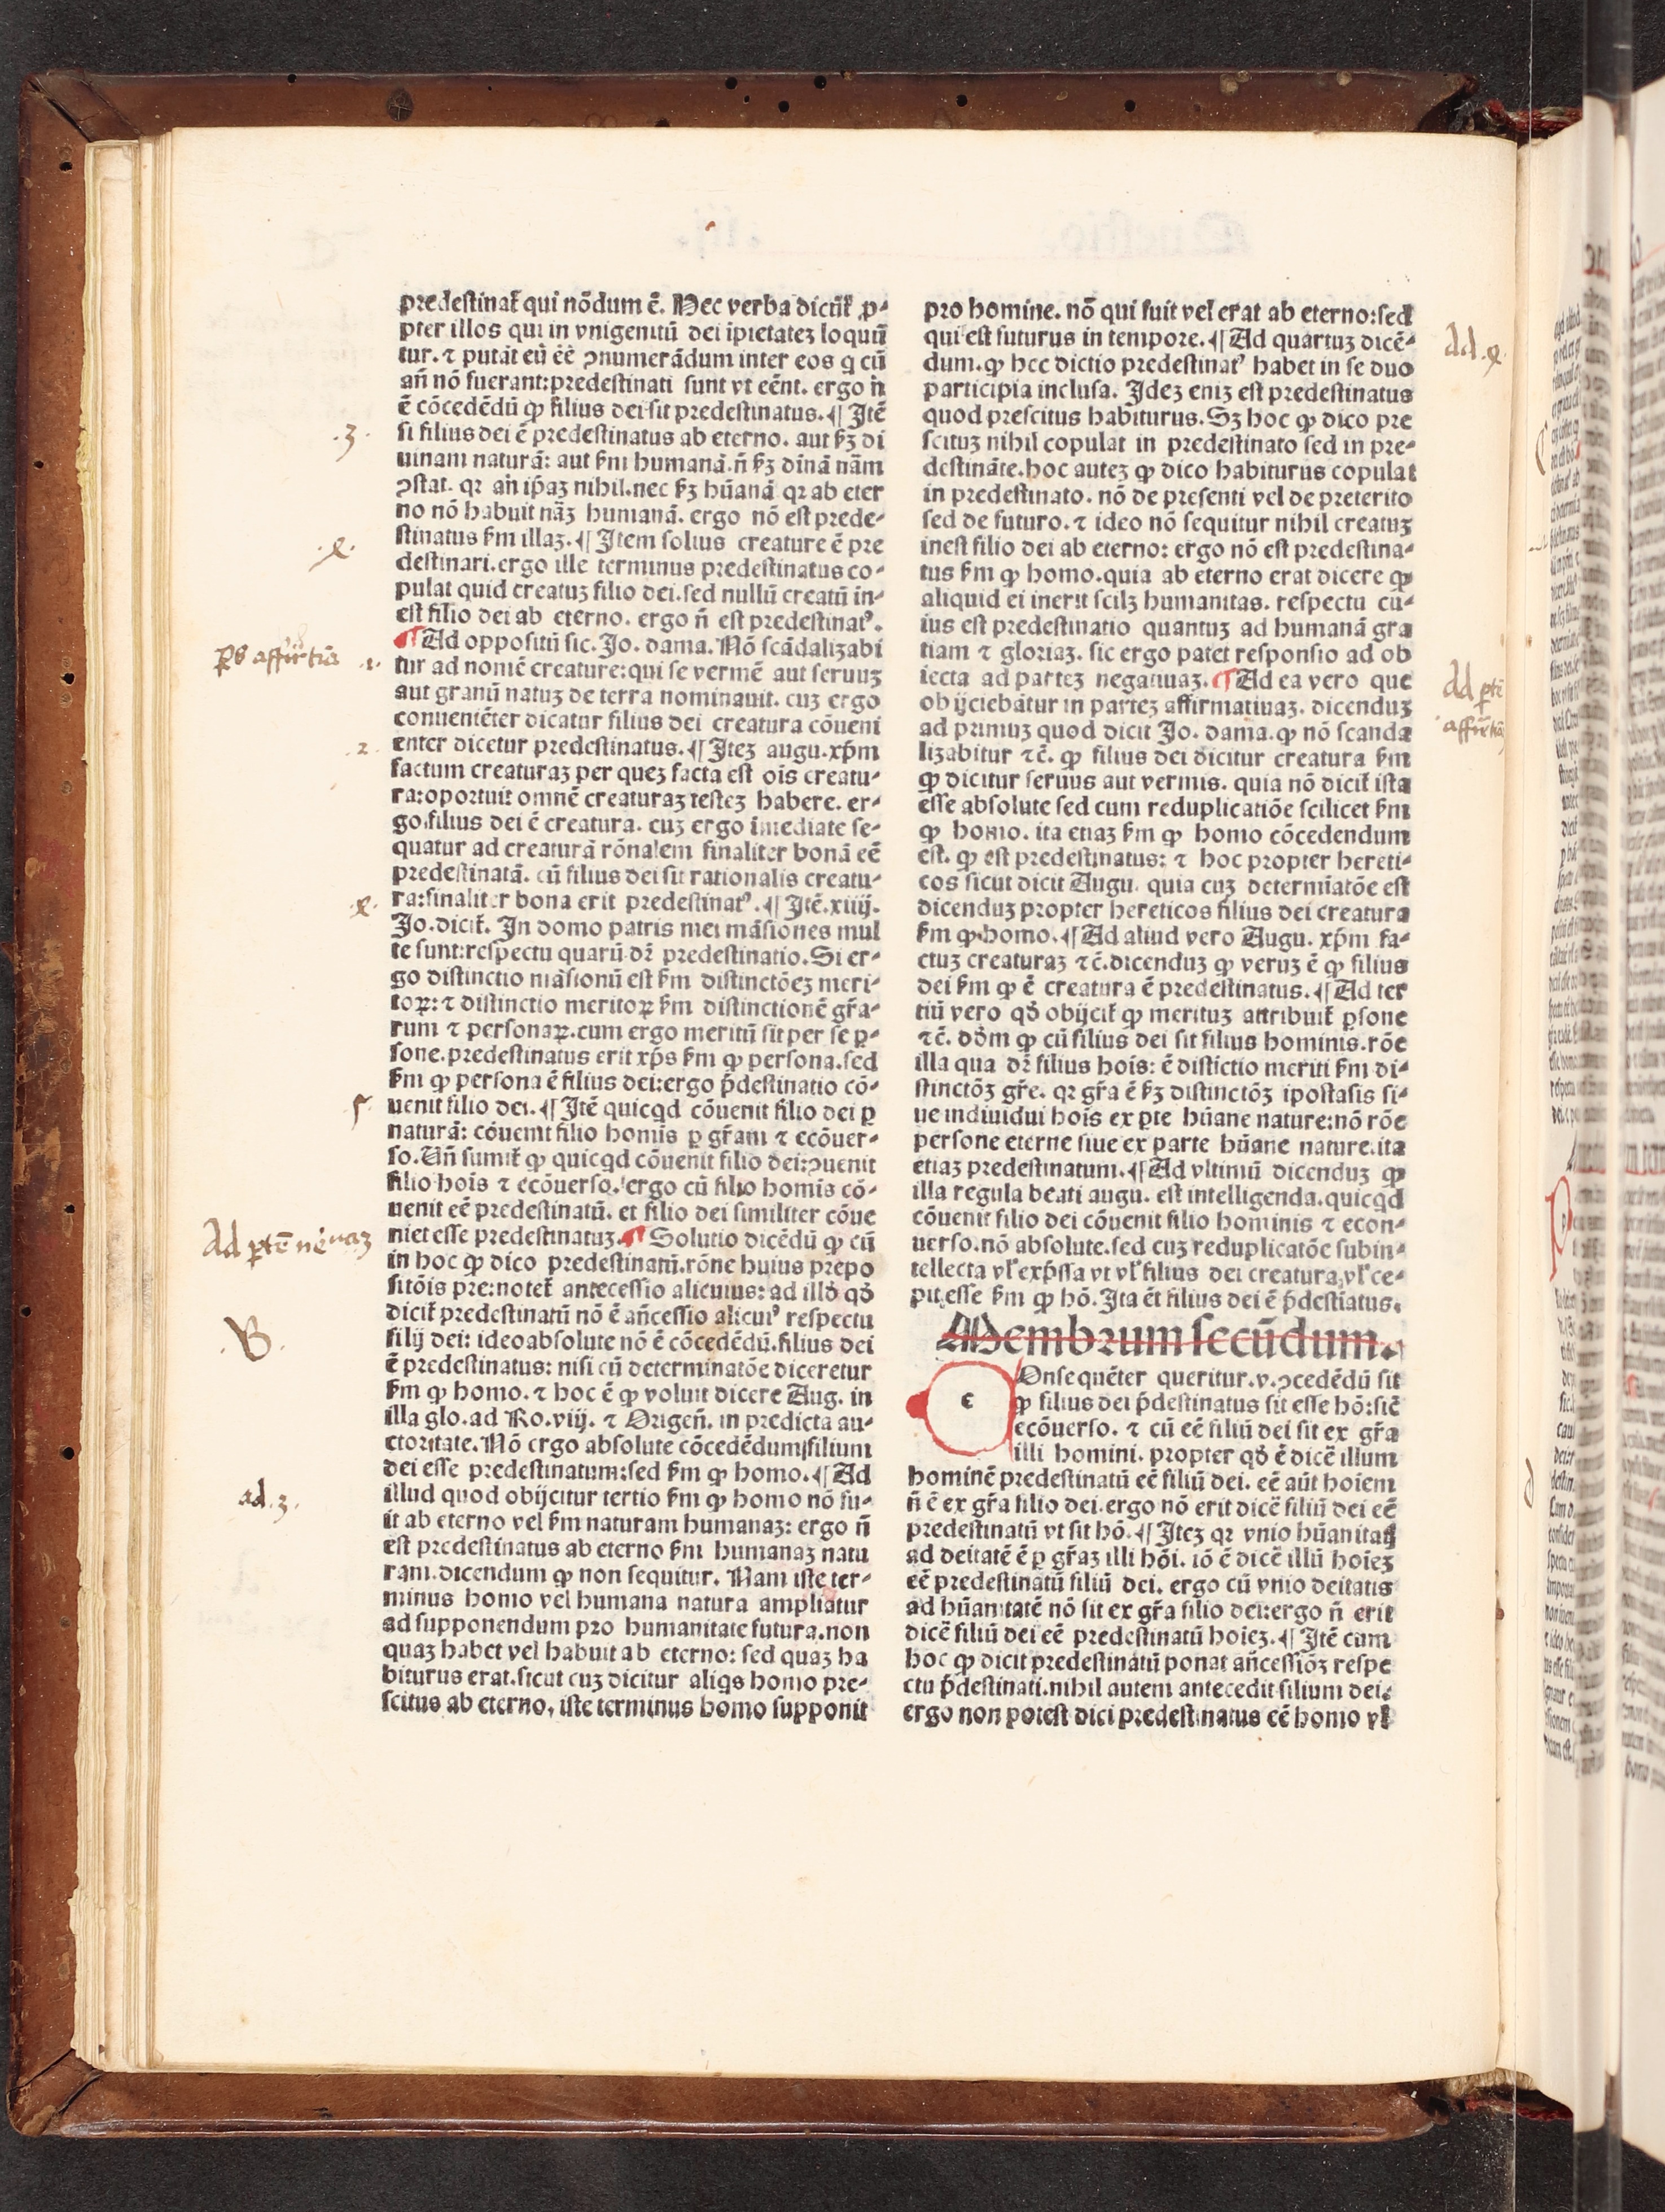 predestinat᷑ qui nōdum ē. Hec verba dicūt᷑ ꝓ-
pter illos qui in vnigenitū dei īpietatez loquū
tur. ⁊ putāt eū eē ꝯnumerādum inter eos q cū
añ nō fuerant: predestinati sunt vt eēnt. ergo ñ
ē cōcedēdū ꝙ filius dei sit predestinatus. ¶ Itē
.3.
si filius dei ē predestinatus ab eterno. aut ẜꝫ di
uinam naturā: aut ẜm humanā. ñ ẜꝫ dīnā nām
ꝯstat. qꝛ añ ip̄aꝫ nihil. nec ẜꝫ hūanā qꝛ ab eter
no nō habuit nāꝫ humanā. ergo nō est prede-
.4.
stinatus ẜm illaꝫ. ¶ Item solius creature ē pre
destinari. ergo ille terminus predestinatus co-
pulat quid creatuꝫ filio dei. sed nullū creatū in-
est filio dei ab eterno. ergo ñ est predestinatꝰ.
¶ Ad oppositū sic. Jo. dama. Nō scādaliꝫabi
.1.
tur ad nomē creature: qui se vermē aut seruuꝫ
aut granū natuꝫ de terra nominauit. cuꝫ ergo
conueniēter dicatur filius dei creatura cōueni
.2.
enter dicetur predestinatus. ¶ Iteꝫ augu. xp̄m
factum creaturaꝫ per queꝫ facta est oīs creatu-
ra: oportuit omnē creaturaꝫ testeꝫ habere. er-
go. filius dei ē creatura. cuꝫ ergo īmediate se-
quatur ad creaturā rōnalem finaliter bonā eē
predestinatā. cū filius dei sit rationalis creatu-
.4.
ra: finaliter bona erit predestinatꝰ. ¶ Itē. xiiij.
Jo. dicit᷑. In domo patris mei māsiones mul
te sunt: respectu quarū dr̄ predestinatio. Si er-
go distinctio māsionū est ẜm distinctōeꝫ meri-
toꝝ: ⁊ distinctio meritoꝝ ẜm distinctionē gr̄a-
rum ⁊ personaꝝ. cum ergo meritū sit per se ꝑ-
sone. predestinatus erit xp̄s ẜm ꝙ persona. sed
ẜm ꝙ persona ē filius dei: ergo p̄destinatio cō-
5
uenit filio dei. ¶ Itē quicqd cōuenit filio dei ꝑ
naturā: cōuenit filio homīs ꝑ gr̄am ⁊ ecōuer-
so. Uñ sumit᷑ ꝙ quicqd cōuenit filio dei: ꝯuenit
filio hoīs ⁊ ecōuerso. ergo cū filio homīs cō-
uenit eē predestinatū. et filio dei similiter cōue
Ad ꝑtē neuaꝫ
niet esse predestinatuꝫ. ¶ Solutio dicēdū ꝙ cū
in hoc ꝙ dico predestinatū. rōne huius prepo
sitōis pre: notet᷑ antecessio alicuius: ad illđ qđ
dicit᷑ predestinatū nō ē añcessio alicuiꝰ respectu
.B.
filij dei: ideo absolute nō ē cōcedēdū. filius dei
ē predestinatus: nisi cū determinatōe diceretur
ẜm ꝙ homo. ⁊ hoc ē ꝙ voluit dicere Aug. in
illa glo. ad Ro. viij. ⁊ Origeñ. in predicta au-
ctoritate. Nō ergo absolute cōcedēdum filium
dei esse predestinatum: sed ẜm ꝙ homo. ¶ Ad
ad .3.
illud quod obijcitur tertio ẜm ꝙ homo nō fu-
it ab eterno vel ẜm naturam humanaꝫ: ergo ñ
est predestinatus ab eterno ẜm humanaꝫ natu
ram. dicendum ꝙ non sequitur. Nam iste ter-
minus homo vel humana natura ampliatur
ad supponendum pro humanitate futura. non
quaꝫ habet vel habuit ab eterno: sed quaꝫ ha
biturus erat. sicut cuꝫ dicitur aliqs homo pre-
scitus ab eterno, iste terminus homo supponit
pro homine. nō qui fuit vel erat ab eterno: sed
qui est futurus in tempore. ¶ Ad quartuꝫ dicē-
Ad .4.
dum. ꝙ hec dictio predestinatꝰ habet in se duo
participia inclusa. Ideꝫ eniꝫ est predestinatus
quod prescitus habiturus. Sꝫ hoc ꝙ dico pre
scituꝫ nihil copulat in predestinato sed in pre-
destināte. hoc auteꝫ ꝙ dico habiturus copulat
in predestinato. nō de presenti vel de preterito
sed de futuro. ⁊ ideo nō sequitur nihil creatuꝫ
inest filio dei ab eterno: ergo nō est predestina-
tus ẜm ꝙ homo. quia ab eterno erat dicere ꝙ
aliquid ei inerit scilꝫ humanitas. respectu cu-
ius est predestinatio quantuꝫ ad humanā gra
tiam ⁊ gloriaꝫ. sic ergo patet responsio ad ob
iecta ad parteꝫ negatiuaꝫ. ¶ Ad ea vero que
Ad ꝑtē
obijciebātur in parteꝫ affirmatiuaꝫ. dicenduꝫ
ad primuꝫ quod dicit Jo. dama. ꝙ nō scanda
liꝫabitur ⁊c̄. ꝙ filius dei dicitur creatura ẜm
ꝙ dicitur seruus aut vermis. quia nō dicit᷑ ista
esse absolute sed cum reduplicatiōe scilicet ẜm
ꝙ homo. ita etiaꝫ ẜm ꝙ homo cōcedendum
est. ꝙ est predestinatus: ⁊ hoc propter hereti-
cos sicut dicit Augu. quia cuꝫ determīatōe est
dicenduꝫ propter hereticos filius dei creatura
ẜm ꝙ homo. ¶ Ad aliud vero Augu. xp̄m fa-
ctuꝫ creaturaꝫ ⁊c̄. dicenduꝫ ꝙ veruꝫ ē ꝙ filius
dei ẜm ꝙ ē creatura ē predestinatus. ¶ Ad ter
tiū vero qđ obijcit᷑ ꝙ merituꝫ attribuit᷑ ꝑsone
⁊c̄. dđm ꝙ cū filius dei sit filius hominis. rōe
illa qua dr̄ filius hoīs: ē distīctio meriti ẜm di-
stinctōꝫ gr̄e. qꝛ gr̄a ē ẜꝫ distinctōꝫ ipostasis si-
ue indiuidui hoīs ex ꝑte hūane nature: nō rōe
persone eterne siue ex parte hūane nature. ita
etiaꝫ predestinatum. ¶ Ad vltimū dicenduꝫ ꝙ
illa regula beati augu. est intelligenda. quicqd
cōuenit filio dei cōuenit filio hominis ⁊ econ-
uerso. nō absolute. sed cuꝫ reduplicatōe subin-
tellecta vl̓ exp̄ssa vt vl̓ filius dei creatura, vl̓ ce-
pit esse ẜm ꝙ hō. Ita ēt filius dei ē p̄destiatus.
Membrum secūdum.
c
Onsequēter queritur. v. ꝯcedēdū sit
ꝙ filius dei p̄destinatus sit esse hō: sic̄
ecōuerso. ⁊ cū eē filiū dei sit ex gr̄a
illi homini. propter qđ ē dicē illum
hominē predestinatū eē filiū dei. eē aūt hoīem
ñ ē ex gr̄a filio dei. ergo nō erit dicē filiū dei eē
predestinatū vt sit hō. ¶ Iteꝫ qꝛ vnio hūanitatꝭ
ad deitatē ē ꝑ gr̄aꝫ illi hōi. iō ē dicē illū hoīeꝫ
eē predestinatū filiū dei. ergo cū vnio deitatis
ad hūanitatē nō sit ex gr̄a filio dei: ergo ñ erit
dicē filiū dei eē predestinatū hoīeꝫ. ¶ Itē cum
hoc ꝙ dicit predestinatū ponat añcessiōꝫ respe
ctu p̄destinati. nihil autem antecedit filium dei:
ergo non potest dici predestinatus eē homo vl̓